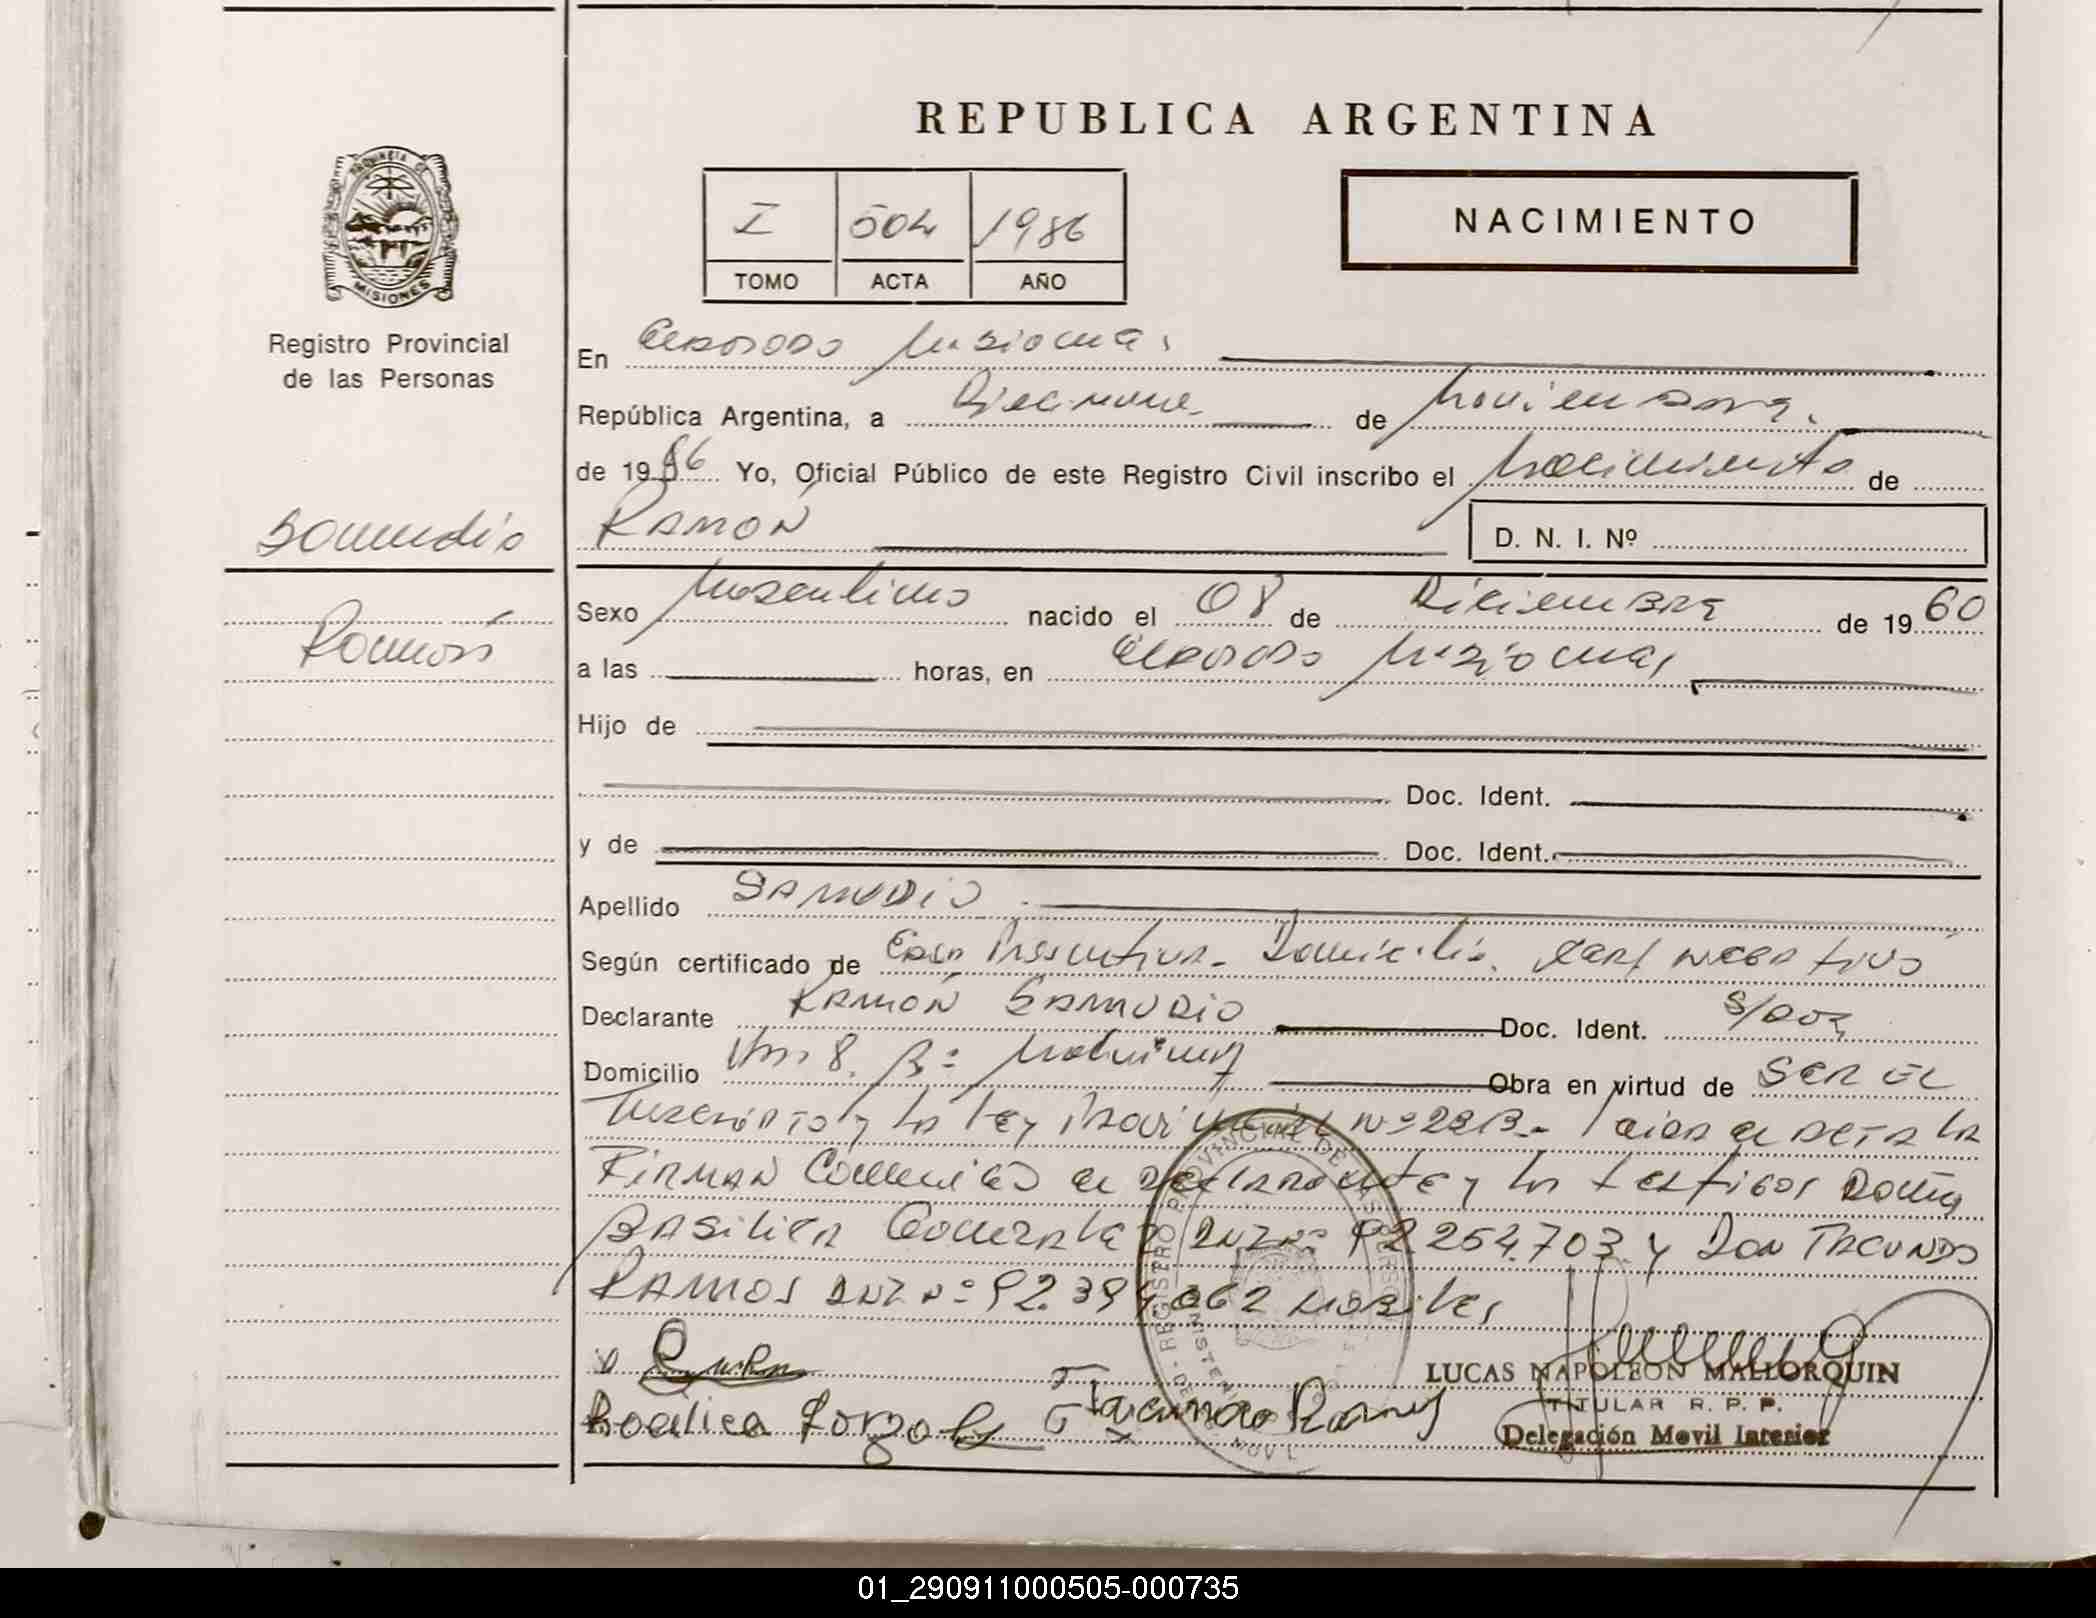 REPUBLICA ARGENTINA
PROVINCIA DE
MISIONES
Registro Provincial
de las Personas
I 504 1986
TOMO ACTA AÑO
NACIMIENTO
En Eldorado Misiones,
República Argentina, a Diecinueve de Noviembre.
de 1986 Yo, Oficial Público de este Registro Civil inscribo el Nacimiento de
Samudio
RAMON D. N. I. Nº
Ramón
Sexo Masculino nacido el 08 de Diciembre de 1960
a las horas, en Eldorado Misiones,
Hijo de
Doc. Ident.
y de Doc. Ident.
Apellido SAMUDIO
Según certificado de Domicilio. Cert negativo
Declarante RAMÓN SAMUDIO Doc. Ident. S/Doc
Domicilio Km. 8. Bº Obra en virtud de SER EL
Inscripto y la Ley Provincial Nº Leida el acta la
Firman Conmigo el declarante y los testigos Doña
Basilica Gonzalez DNI Nº 92.254.703 y Don Facundo
Ramos DNI Nº 92.394.062
Facundo Ramos
LUCAS NAPOLEON MALLORQUIN
TITULAR R. P. P.
Delegación Movil Interior
01_290911000505-000735